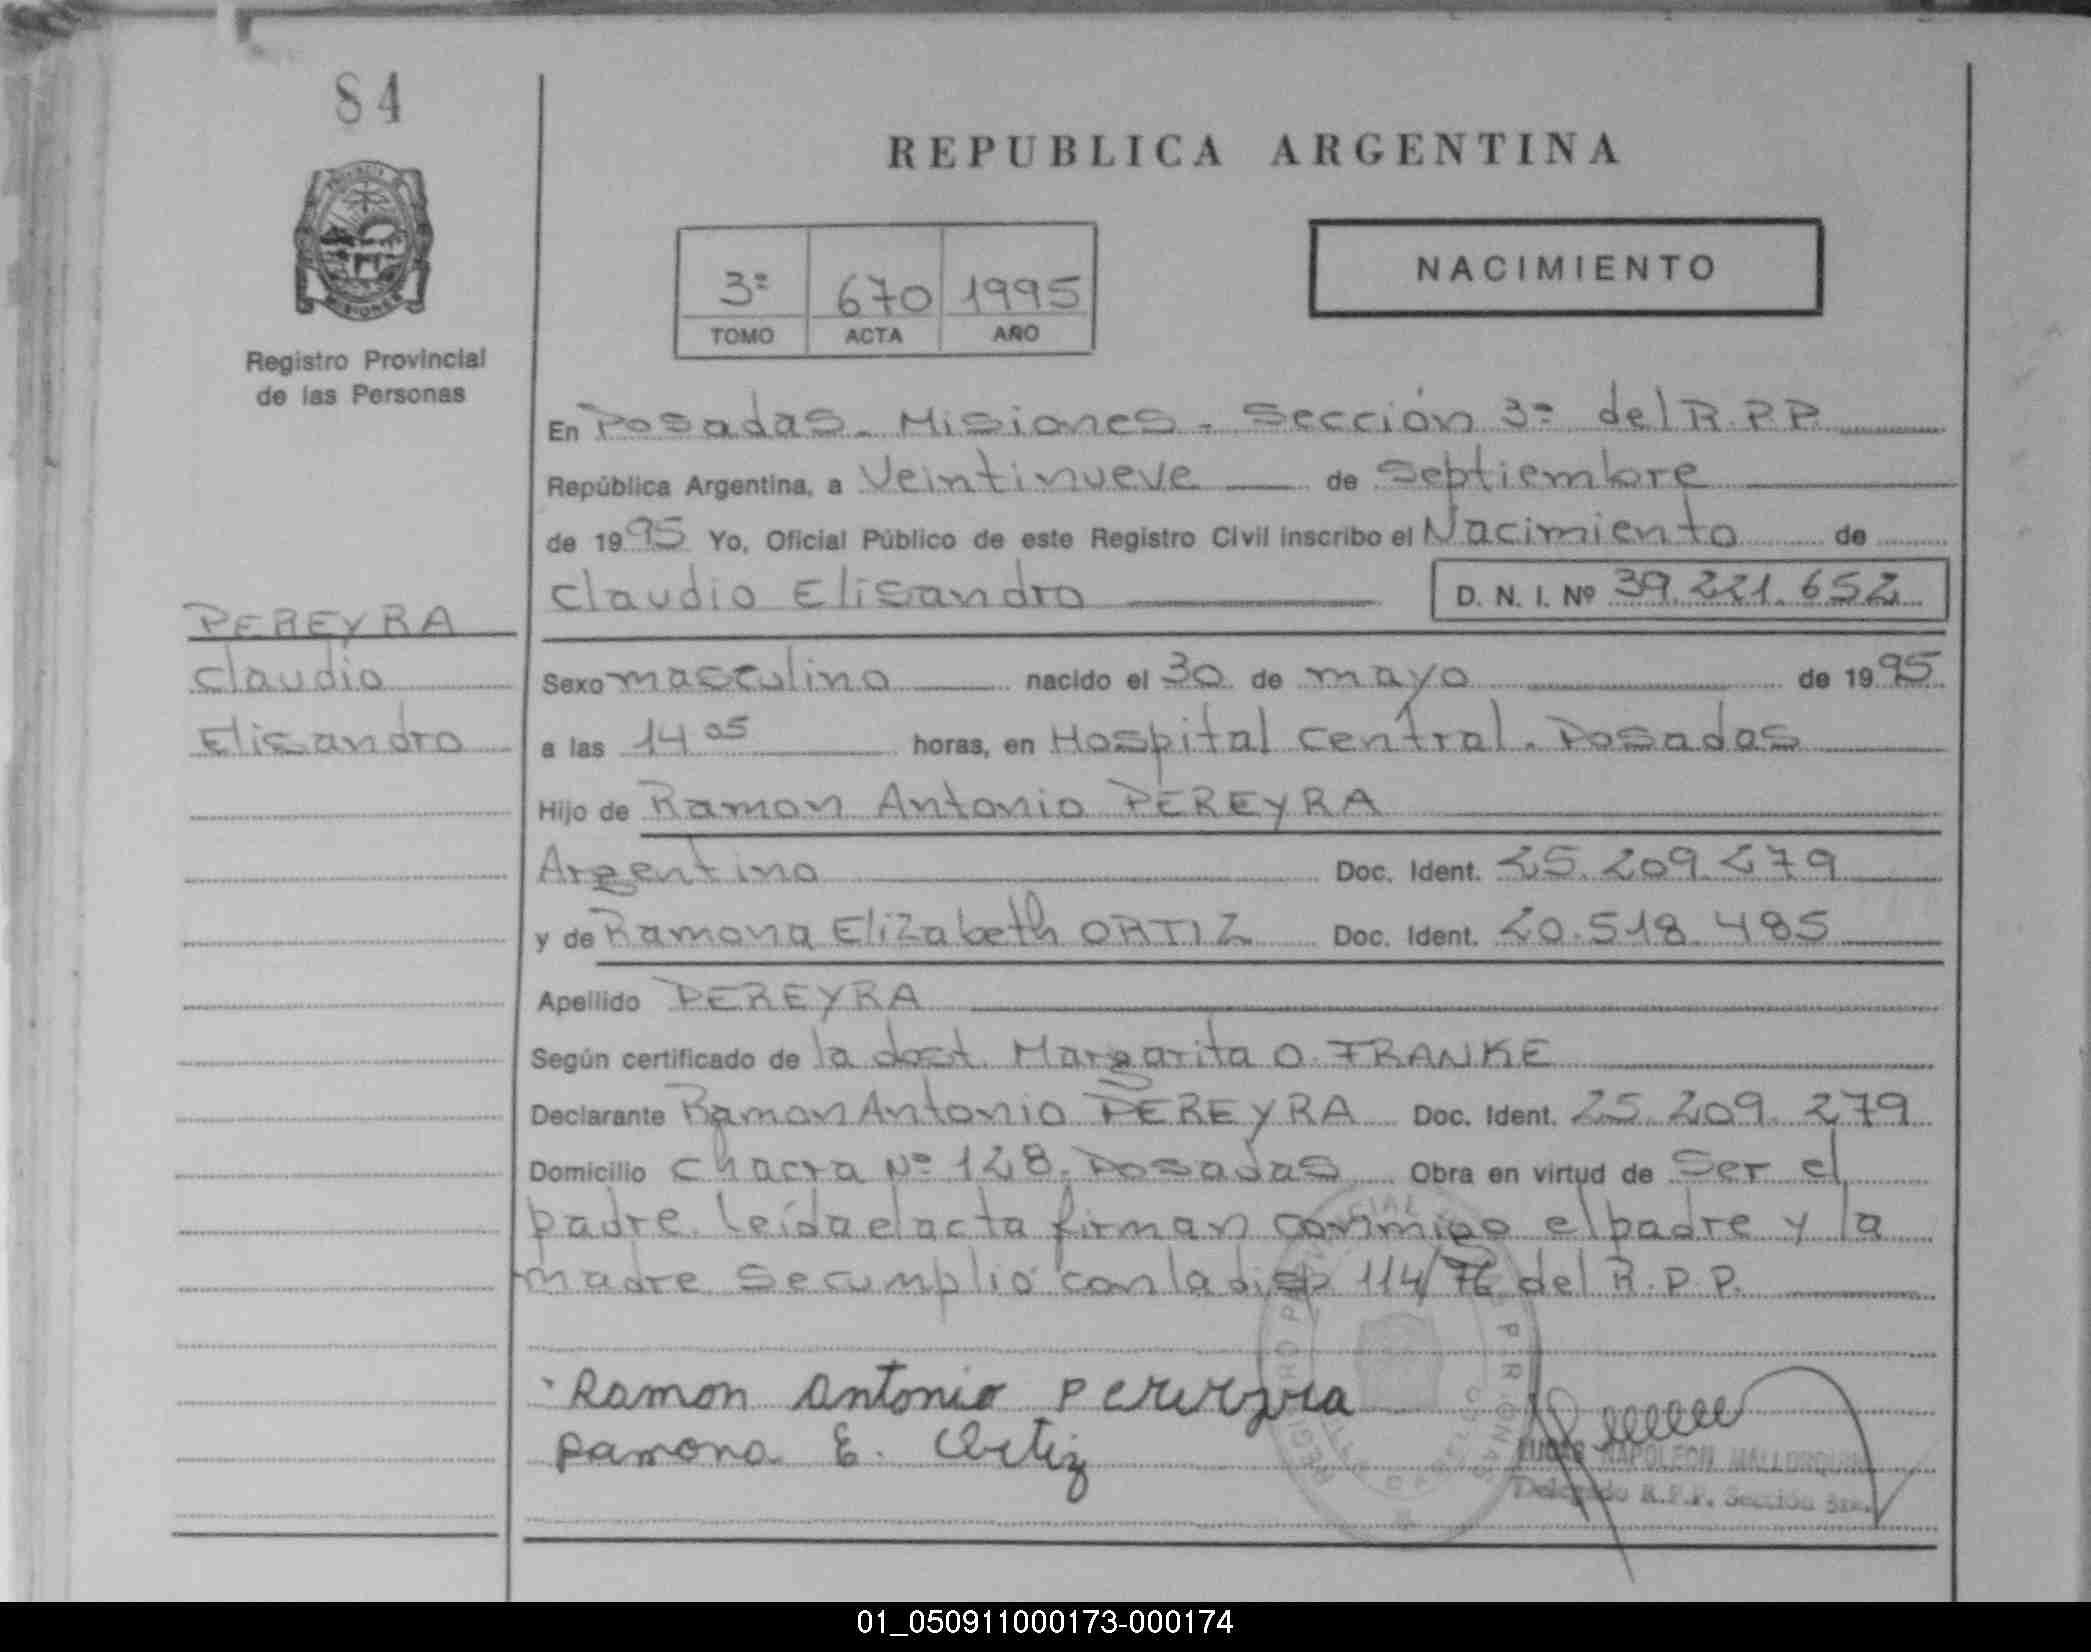 84
REPUBLICA ARGENTINA
3ª 670 1995
TOMO ACTA AÑO
NACIMIENTO
Registro Provincial
de las Personas
En Posadas - Misiones - Sección 3ª del R.P.P.
República Argentina, a Veintinueve de Septiembre
de 1995 Yo, Oficial Público de este Registro Civil inscribo el Nacimiento de
Claudio Elisandro D. N. I. Nº 39.221.652
PEREYRA
Claudio
Elisandro
Sexo masculino nacido el 30 de mayo de 1995
a las 14 05 horas, en Hospital Central. Posadas
Hijo de Ramon Antonio PEREYRA
Argentino Doc. Ident. 25.209.279
y de Ramona Elizabeth ORTIZ Doc. Ident. 20.518.485
Apellido PEREYRA
Según certificado de la doct. Margarita O. FRANKE
Declarante Ramon Antonio PEREYRA Doc. Ident. 25.209.279
Domicilio Chacra Nº 128. Posadas Obra en virtud de Ser el
padre. Leída el acta firman conmigo el padre y la
madre Se cumplió con la disp 114/76 del R.P.P.
Ramon Antonio Pereyra
Ramona E. Ortiz
NAPOLEON
Delegado R.P.P. Sección 3ra.
01_050911000173-000174